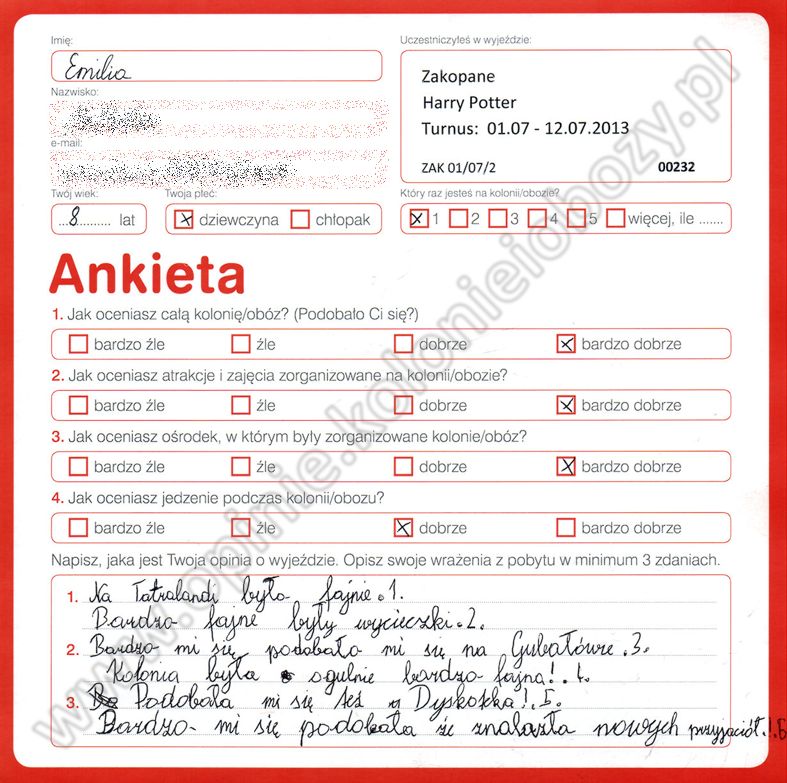 Imię:
Emilia
Nazwisko:
e-mail:
Twój wiek:
...8.......... lat
Twoja płeć:
dziewczyna chłopak
Uczestniczyłeś w wyjeździe:
Zakopane
Harry Potter
Turnus: 01.07 - 12.07.2013
ZAK 01/07/2 00232
Który raz jesteś na kolonii/obozie?
1 2 3 4 5 więcej, ile .......
Ankieta
1. Jak oceniasz całą kolonię/obóz? (Podobało Ci się?)
bardzo źle źle dobrze bardzo dobrze
2. Jak oceniasz atrakcje i zajęcia zorganizowane na kolonii/obozie?
bardzo źle źle dobrze bardzo dobrze
3. Jak oceniasz ośrodek, w którym były zorganizowane kolonie/obóz?
bardzo źle źle dobrze bardzo dobrze
4. Jak oceniasz jedzenie podczas kolonii/obozu?
bardzo źle źle dobrze bardzo dobrze
Napisz, jaka jest Twoja opinia o wyjeździe. Opisz swoje wrażenia z pobytu w minimum 3 zdaniach.
1. Na Tatralandi było fajnie. 1.
Bardzo fajne były wycieczki. 2.
2. Bardzo mi się podobało mi się na Gubałówce. 3.
Kolonia była ogulnie bardzo fajna!. 4.
3. Podobała mi się też Dyskoteka!. 5.
Bardzo mi się podobała że znalazła nowych przyjaciół.! 6
www.opinie.kolonieiobozy.pl